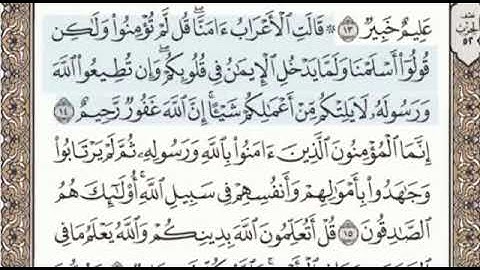 عَلِيمٌ خَبِيرٌ ۝١٣ قَالَتِ ٱلْأَعْرَابُ ءَامَنَّا ۖ قُل لَّمْ تُؤْمِنُوا۟ وَلَٰكِن
قُولُوٓا۟ أَسْلَمْنَا وَلَمَّا يَدْخُلِ ٱلْإِيمَٰنُ فِى قُلُوبِكُمْ ۖ وَإِن تُطِيعُوا۟ ٱللَّهَ
وَرَسُولَهُۥ لَا يَلِتْكُم مِّنْ أَعْمَٰلِكُمْ شَيْـًٔا ۚ إِنَّ ٱللَّهَ غَفُورٌ رَّحِيمٌ ۝١٤
إِنَّمَا ٱلْمُؤْمِنُونَ ٱلَّذِينَ ءَامَنُوا۟ بِٱللَّهِ وَرَسُولِهِۦ ثُمَّ لَمْ يَرْتَابُوا۟
وَجَٰهَدُوا۟ بِأَمْوَٰلِهِمْ وَأَنفُسِهِمْ فِى سَبِيلِ ٱللَّهِ ۚ أُو۟لَٰٓئِكَ هُمُ
ٱلصَّٰدِقُونَ ۝١٥ قُلْ أَتُعَلِّمُونَ ٱللَّهَ بِدِينِكُمْ وَٱللَّهُ يَعْلَمُ مَا فِى